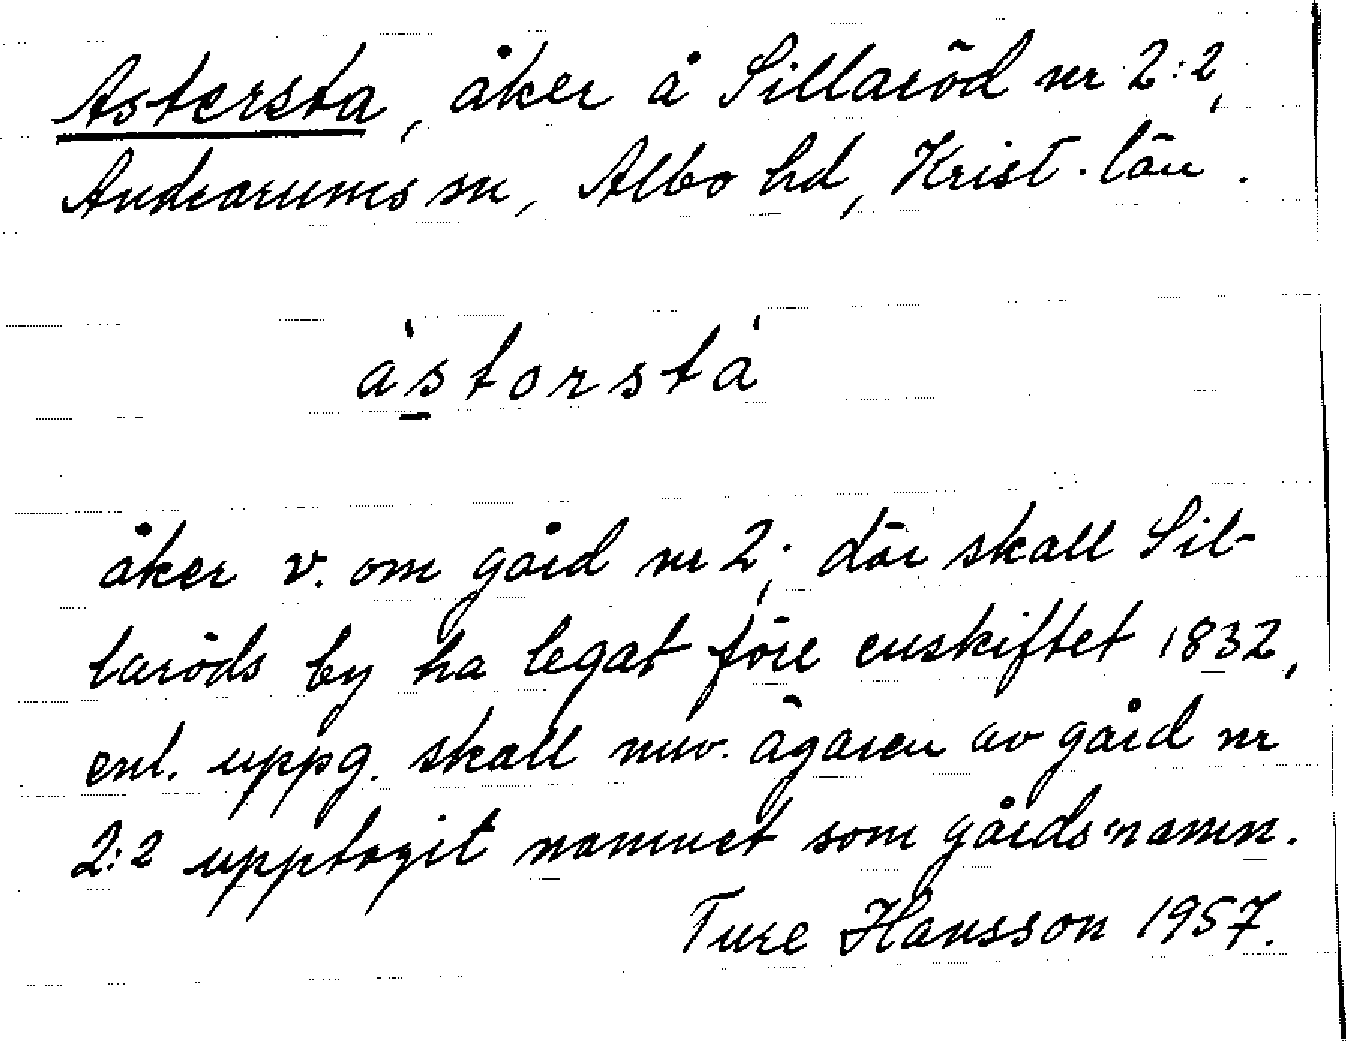 Astersta, åker å Sillaröd nr 2:2,
Andrarums sn, Albo hd, Krist. län.
àstorstà
åker v. om gård nr 2; där skall Sil-
laröds by ha legat före enskiftet 1832,
enl. uppg. skall nuv. ägaren av gård nr
2:2 upptagit namnet som gårdsnamn.
Ture Hansson 1957.